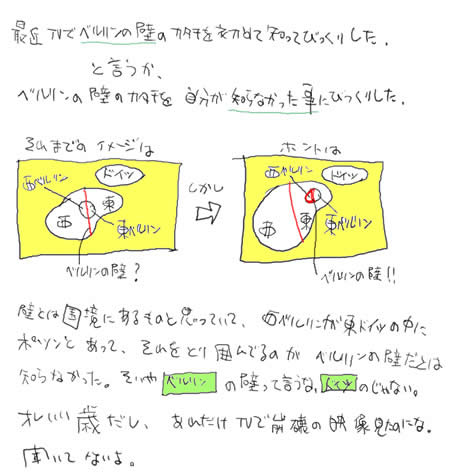 最近TVでベルリンの壁のカタチを初めて知ってびっくりした。
と言うか、
ベルリンの壁のカタチを自分が知らなかった事にびっくりした。
それまでのイメージは
ホントは
西ベルリン
ドイツ
西
東
東ベルリン
ベルリンの壁?
しかし
西ベルリン
ドイツ
西
東
東ベルリン
ベルリンの壁!!
壁とは国境にあるものと思っていて、西ベルリンが東ドイツの中に
ポツンとあって、それをとり囲んでるのがベルリンの壁だとは
知らなかった。そいやベルリンの壁って言うな、ドイツのじゃない。
オレいい歳だし、あれだけTVで崩壊の映像見たのにな。
聞いてないよ。